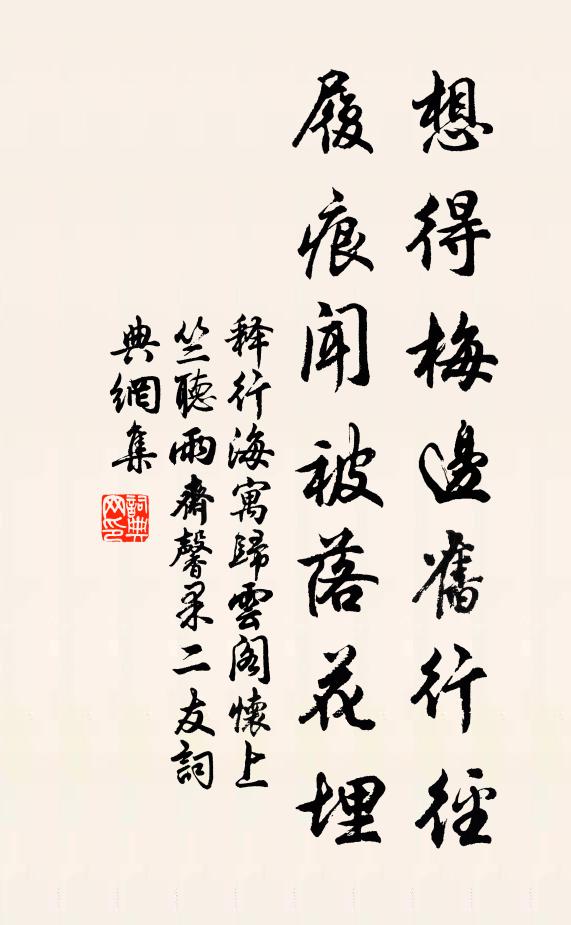 想得梅邊舊行徑
履痕聞被落花埋
释行海寓歸雲閣懷上
竺聽雨齋馨杲二友詞
典網集
詞典網印